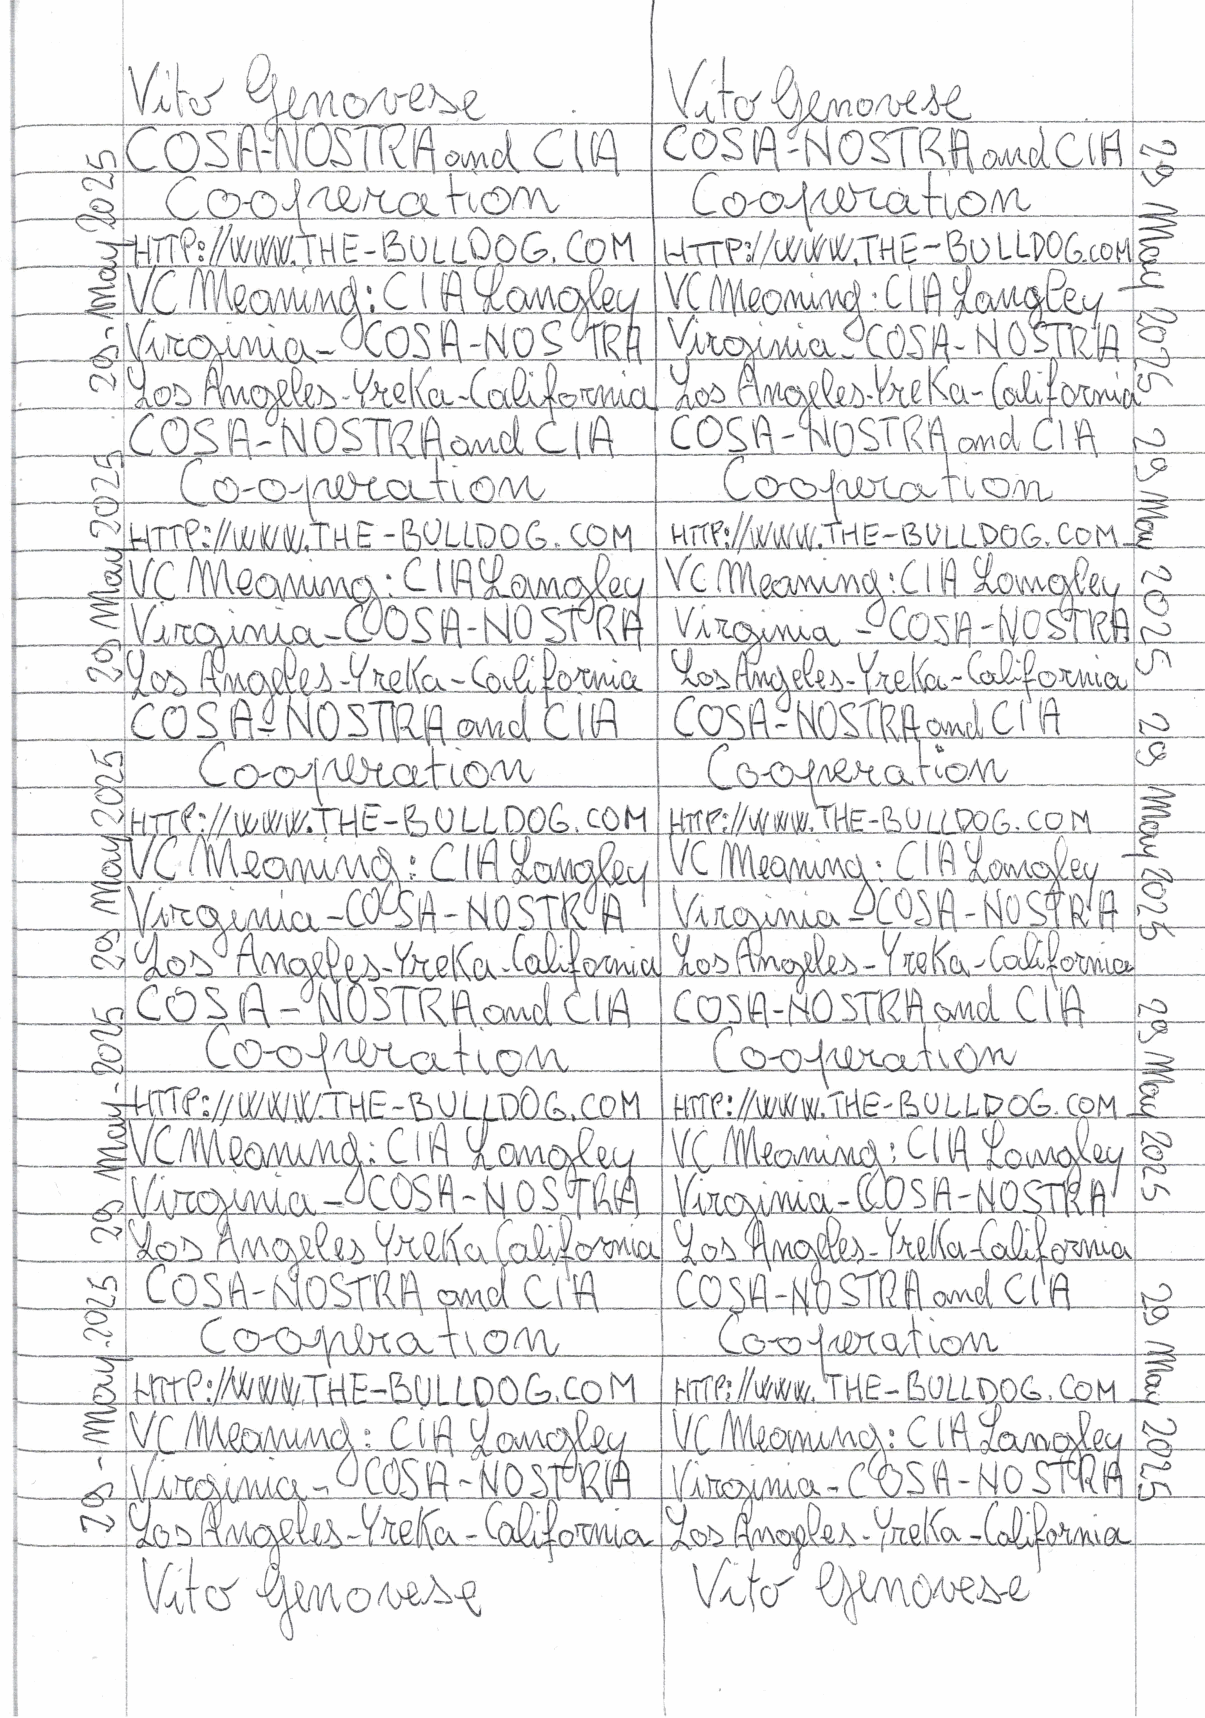 Vito Genovese
COSA-NOSTRA and CIA
Co-operation
HTTP://WWW.THE-BULLDOG.COM
VC Meaning: CIA Langley
Virginia-COSA-NOSTRA
Los Angeles-Yreka-California
COSA-NOSTRA and CIA
Co-operation
HTTP://WWW.THE-BULLDOG.COM
VC Meaning: CIA Langley
Virginia-COOSA-NOSTRA
Los Angeles-Yreka-California
COSA-NOSTRA and CIA
Co-operation
HTTP://WWW.THE-BULLDOG.COM
VC Meaning: CIA Langley
Virginia-COSA-NOSTRA
Los Angeles-Yreka-California
COSA-NOSTRA and CIA
Co-operation
HTTP://WWW.THE-BULLDOG.COM
VC Meaning: CIA Langley
Virginia-COSA-NOSTRA
Los Angeles Yreka California
COSA-NOSTRA and CIA
Co-operation
HTTP://WWW.THE-BULLDOG.COM
VC Meaning: CIA Langley
Virginia-COSA-NOSTRA
Los Angeles-Yreka-California
Vito Genovese
Vito Genovese
COSA-NOSTRA and CIA
Cooperation
HTTP://WWW.THE-BULLDOG.COM
VC Meaning: CIA Langley
Virginia-COSA-NOSTRA
Los Angeles-Yreka-California
COSA-NOSTRA and CIA
Cooperation
HTTP://WWW.THE-BULLDOG.COM
VC Meaning: CIA Langley
Virginia-COSA-NOSTRA
Los Angeles-Yreka-California
COSA-NOSTRA and CIA
Co-operation
HTTP://WWW.THE-BULLDOG.COM
VC Meaning: CIA Langley
Virginia-COSA-NOSTRA
Los Angeles-Yreka-California
COSA-NOSTRA and CIA
Co-operation
HTTP://WWW.THE-BULLDOG.COM
VC Meaning: CIA Langley
Virginia-COSA-NOSTRA
Los Angeles-Yreka-California
COSA-NOSTRA and CIA
Co-operation
HTTP://WWW.THE-BULLDOG.COM
VC Meaning: CIA Langley
Virginia-COSA-NOSTRA
Los Angeles-Yreka-California
Vito Genovese
29-May 2025
29 May 2025
29 May 2025
29 May-2025
29-May-2025
29 May 2025
29 May 2025
29 May 2025
29 May 2025
29 May 2025